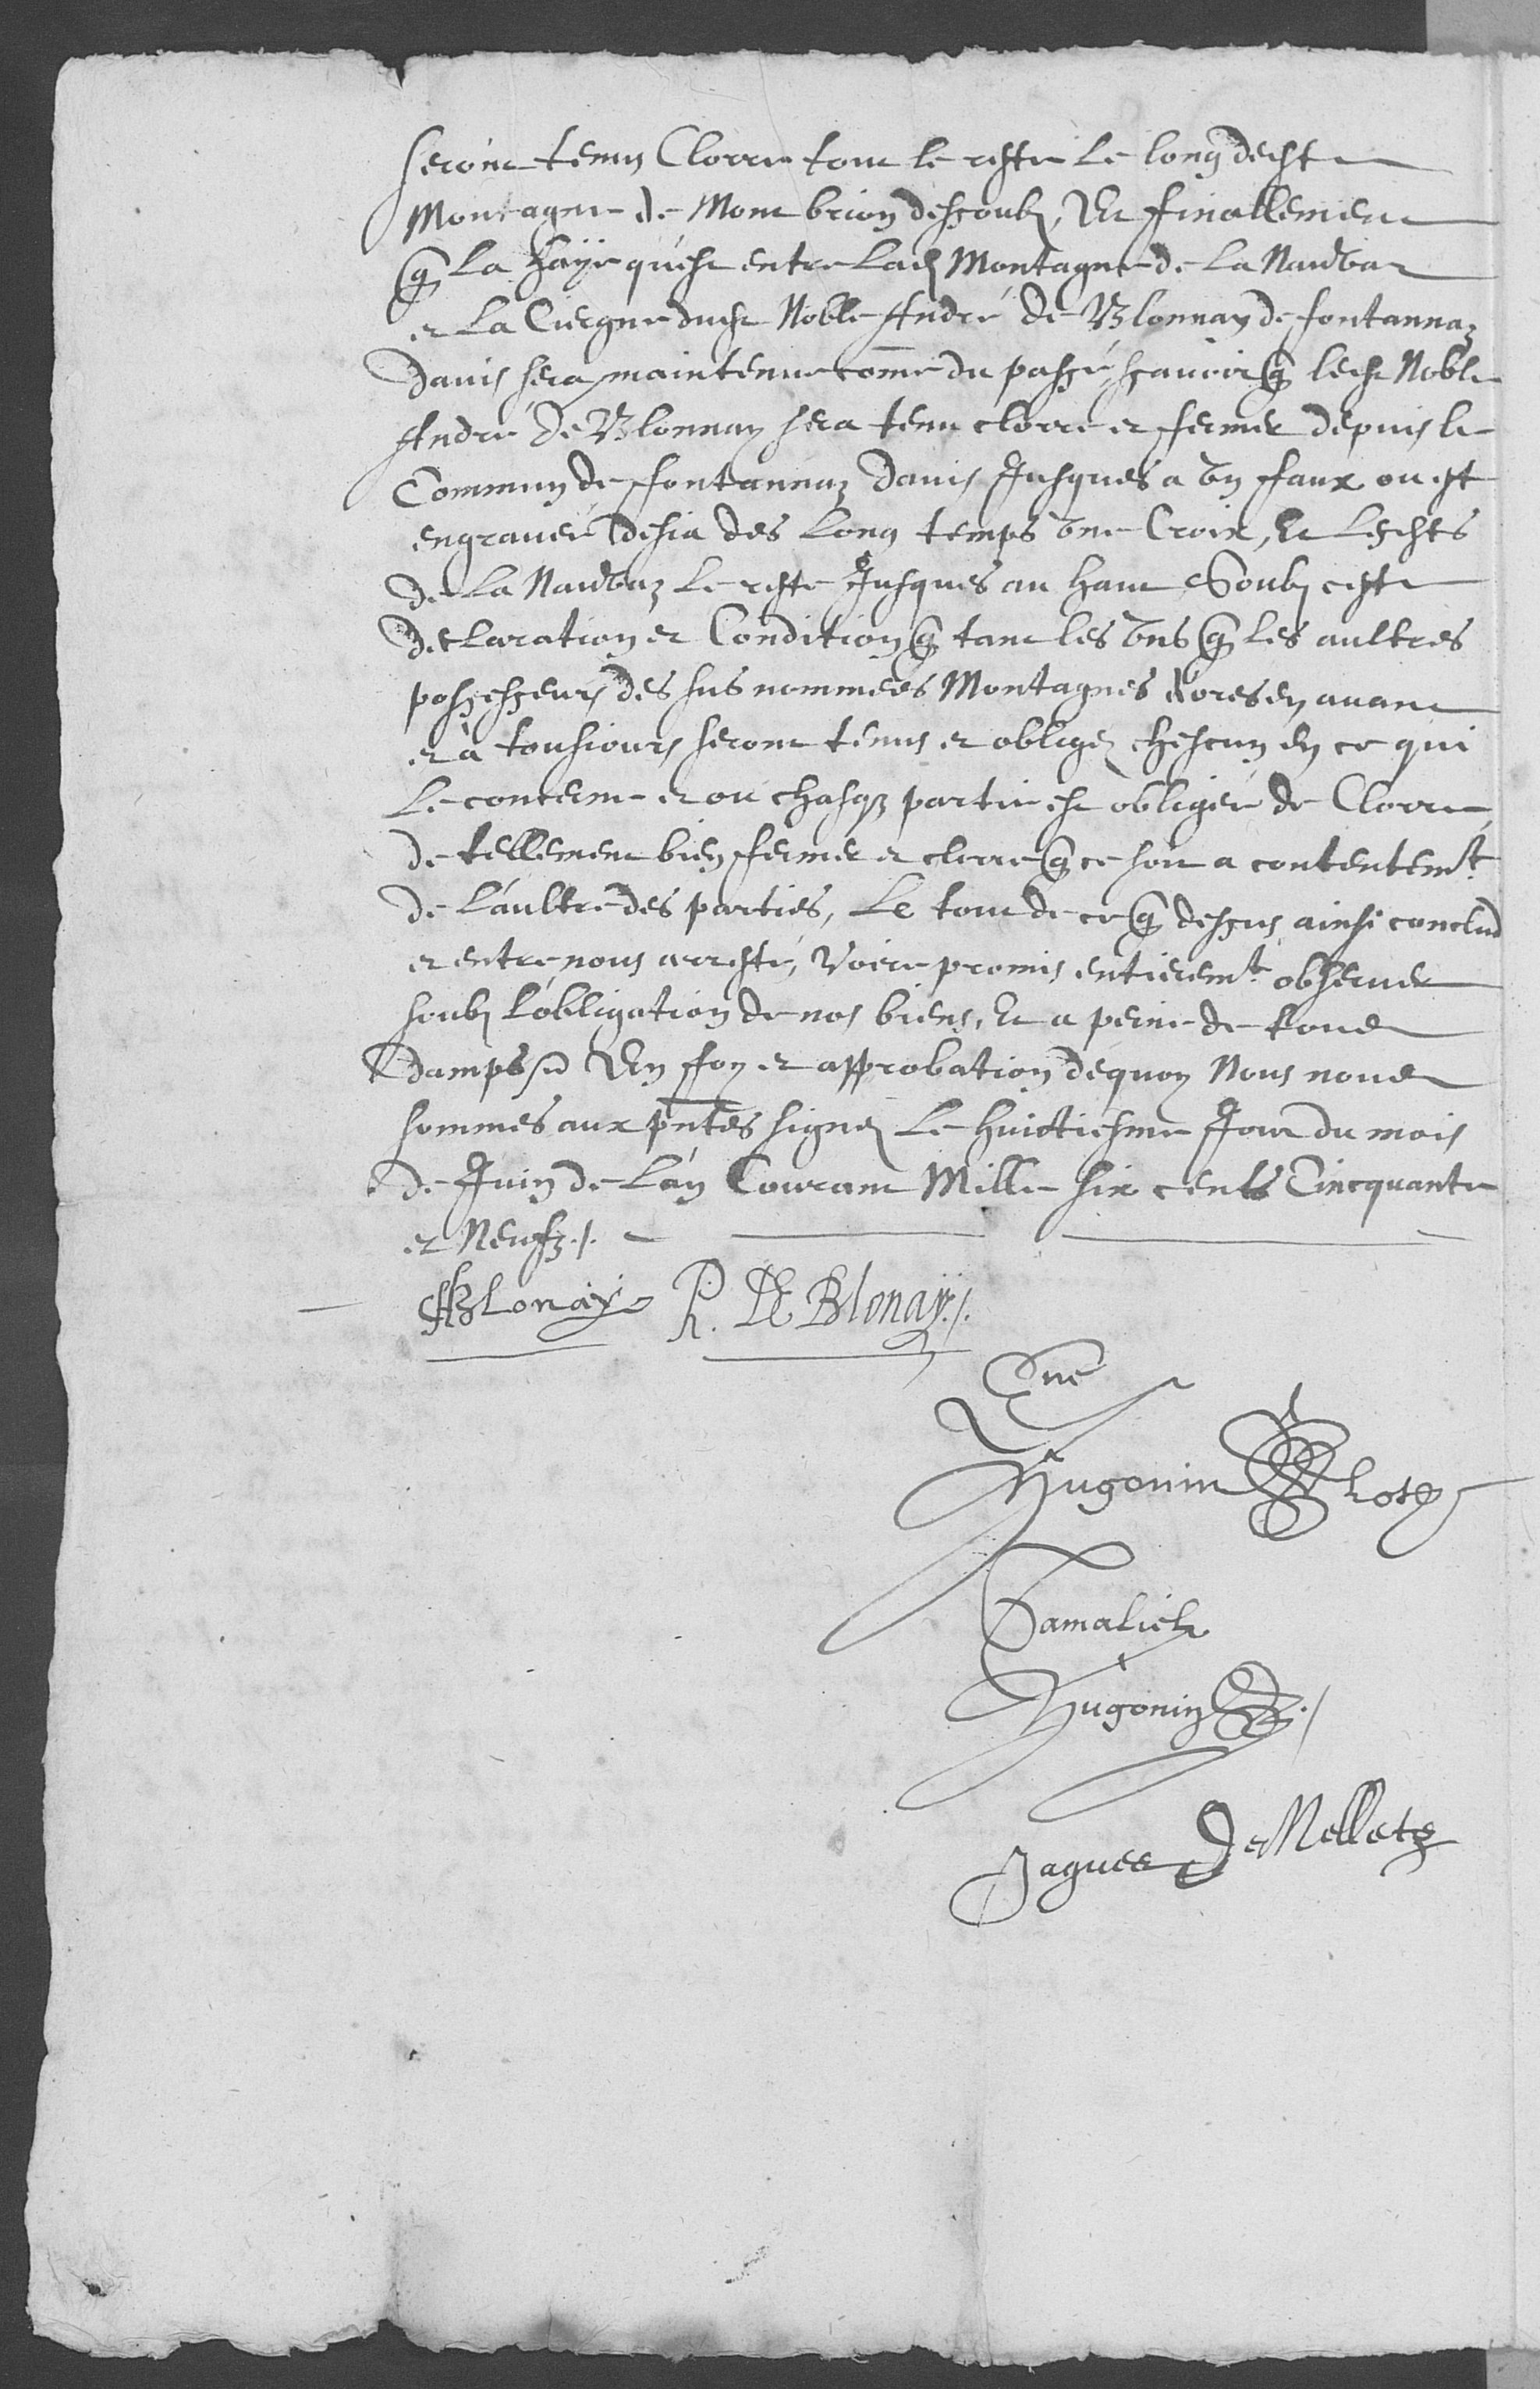 seront tenus Clorre tout le reste le long decste
Montagne de Mont brion dessoubs, Et finallement
q̃ La Haÿe qu'est entre lad Montagne de La Nauvaz
et La Ciergne dudt Noble André de Blonnay de fontannaz
Dauis sera maintenue com̃e du passé sçauoir q̃ ledt Noble
André de Blonnay sera tenu clorre et fermer depuis le
Commun de ffontannaz Dauis Jusques a vn ffaux ou est
engrauée desia des Long temps vne Croix, Et Lesdts
de La Nauvaz Le reste Jusques au haut, Soubs ceste
declaration et Condition q̃ tant les vns q̃ les aultres
possesseurs des sus nommées Montagnes d'ores en auant
et à tousiours seront tenus et obligez chescun en ce qui
Le concerne et ou chasqz partie est obligée de Clorre,
de tellement bien fermer et clorre q̃ ce soit a contentemt
de L'aultre des parties, Le tout de ce q̃ dessus ainsi conclud
et entre nous arresté, Voire promis entieremt obseruer
soubs l'obligation de nos biens, Et a peine de tous
damps En ffoy et approbation dequoy Nous nous
sommes aux pñtes signez Le huictiesme Jour du mois
de Juin de L'an Courant Mille six cents Cincquante
et Neufz./.
ABLonaÿ R. DE Blonaÿ./.
Ene
Hugonin
Gamaliel
Hugonin ./
Jaques De Melletz